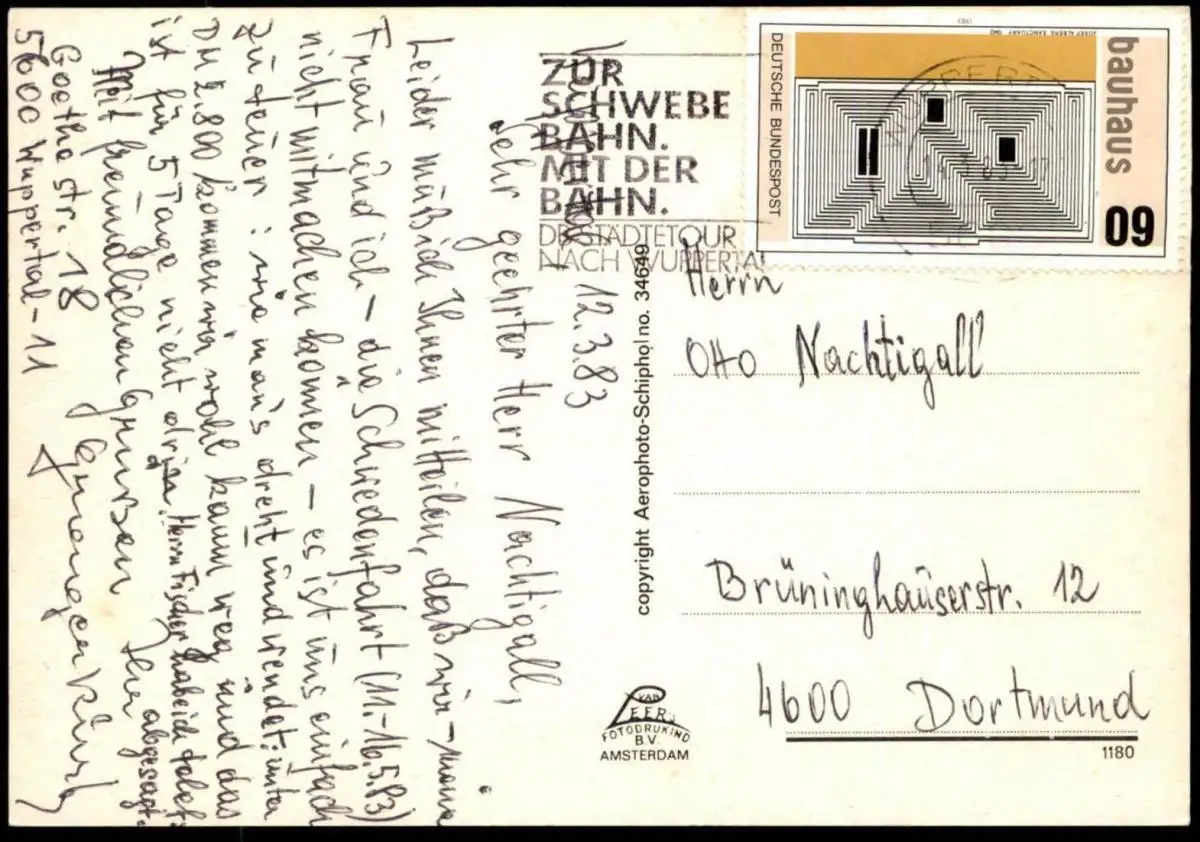 Wuppertal, 12.3.83
Sehr geehrter Herr Nachtigall,
Leider muß ich Ihnen mitteilen, daß wir – meine
Frau und ich – die Schwedenfahrt (11.-16.5.83)
nicht mitmachen können – es ist uns einfach
zu teuer: wie man's dreht und wendet: unter
DM 2.800 kommen wir wohl kaum weg und das
ist für 5 Tage nicht drin. Herrn Fischer habe ich telef.
abgesagt.
Mit freundlichen Grüßen Ihr
Goethestr. 18
5600 Wuppertal-11
ZUR
SCHWEBE
BAHN.
MIT DER
BAHN.
DIE STÄDTETOUR
NACH WUPPERTAL
WUPPERTAL
DEUTSCHE BUNDESPOST
JOSEF ALBERS SANCTUARY 1942
1983
bauhaus
60
copyright Aerophoto-Schiphol no. 34649
Herrn
Otto Nachtigall
Brüninghäuserstr. 12
4600 Dortmund
VAN
LEER's
FOTODRUKIND
B.V.
AMSTERDAM
1180